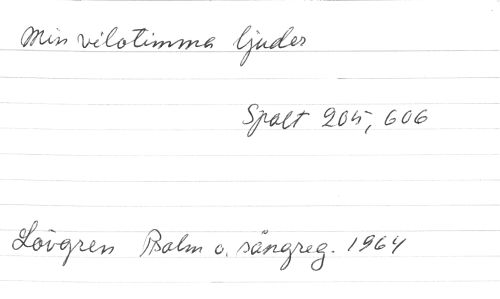 Min vilotimma ljuder
Spalt 205, 606
Lövgren Psalm o. sångreg. 1964